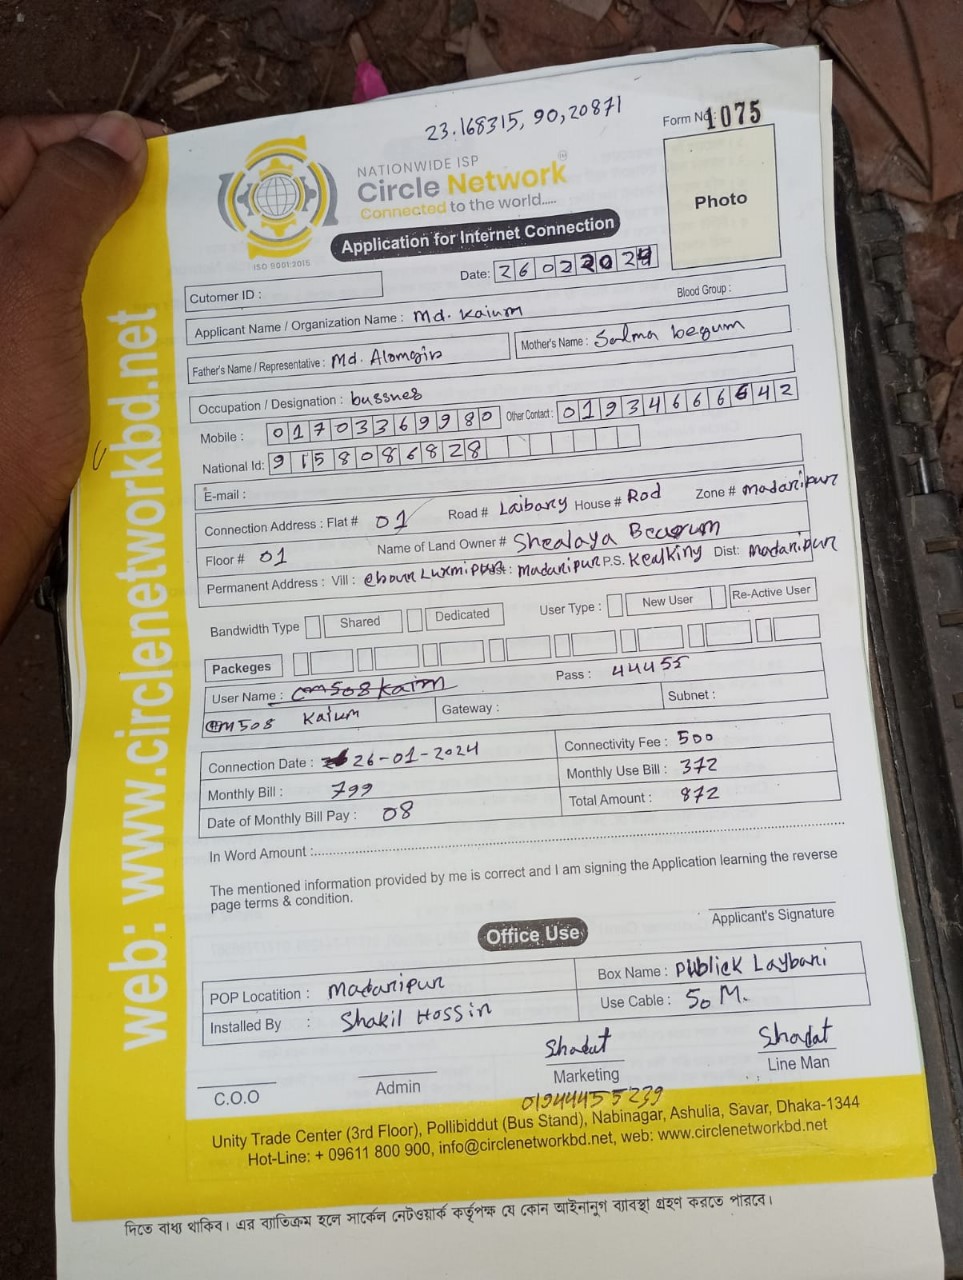 23.168315, 90,20871
Form No: 1075
NATIONWIDE ISP
Circle Network
Connected to the world.....
ISO 9001:2015
Application for Internet Connection
Photo
Date: 26022024
Cutomer ID :
Blood Group :
Applicant Name / Organization Name : Md. Kaium
Father's Name / Representative : Md. Alomgir
Mother's Name : Salma begum
Occupation / Designation : bussnes
Mobile : 01703369980 Other Contact : 01934666642
National Id: 9158086828
E-mail :
Connection Address : Flat # 01 Road # Laibary House # Rod Zone # madaripur
Floor # 01 Name of Land Owner # Shealaya Beagum
Permanent Address : Vill : Luxmipur : Madaripur P.S. Dist: Madaripur
Bandwidth Type Shared Dedicated User Type : New User Re-Active User
Packeges
User Name : cm508kaim Pass : 44455
cm508 Kaium Gateway : Subnet :
Connection Date : 26-01-2024 Connectivity Fee : 500
Monthly Bill : 799 Monthly Use Bill : 372
Date of Monthly Bill Pay : 08 Total Amount : 872
In Word Amount :
The mentioned information provided by me is correct and I am signing the Application learning the reverse
page terms & condition.
Applicant's Signature
Office Use
POP Locatition : Madaripur Box Name : Publick Laybari
Installed By : Shakil Hossin Use Cable : 50 M.
Shadat Shadat
C.O.O Admin Marketing Line Man
01944455239
Unity Trade Center (3rd Floor), Pollibiddut (Bus Stand), Nabinagar, Ashulia, Savar, Dhaka-1344
Hot-Line: + 09611 800 900, info@circlenetworkbd.net, web: www.circlenetworkbd.net
দিতে বাধ্য থাকিব। এর ব্যতিক্রম হলে সার্কেল নেটওয়ার্ক কর্তৃপক্ষ যে কোন আইনানুগ ব্যাবস্থা গ্রহণ করতে পারবে।
web: www.circlenetworkbd.net